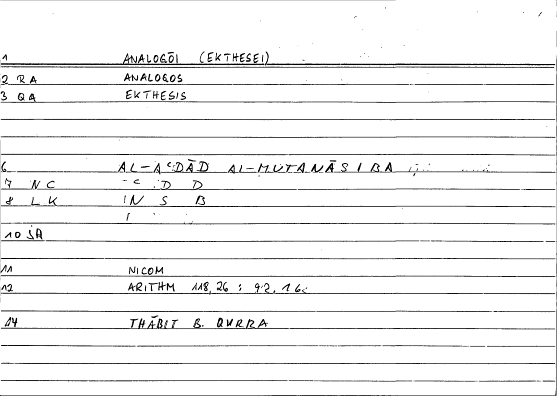 1 ANALOGŌI (EKTHESEI)
2 RA ANALOGOS
3 QA EKTHESIS
6 AL-AᶜDĀD AL-MUTANĀSIBA
7 NC ᶜ D D
8 LK N S B
10 JA
11 NICOM
12 ARITHM 118,26 : 92.16
14 THĀBIT B. QURRA